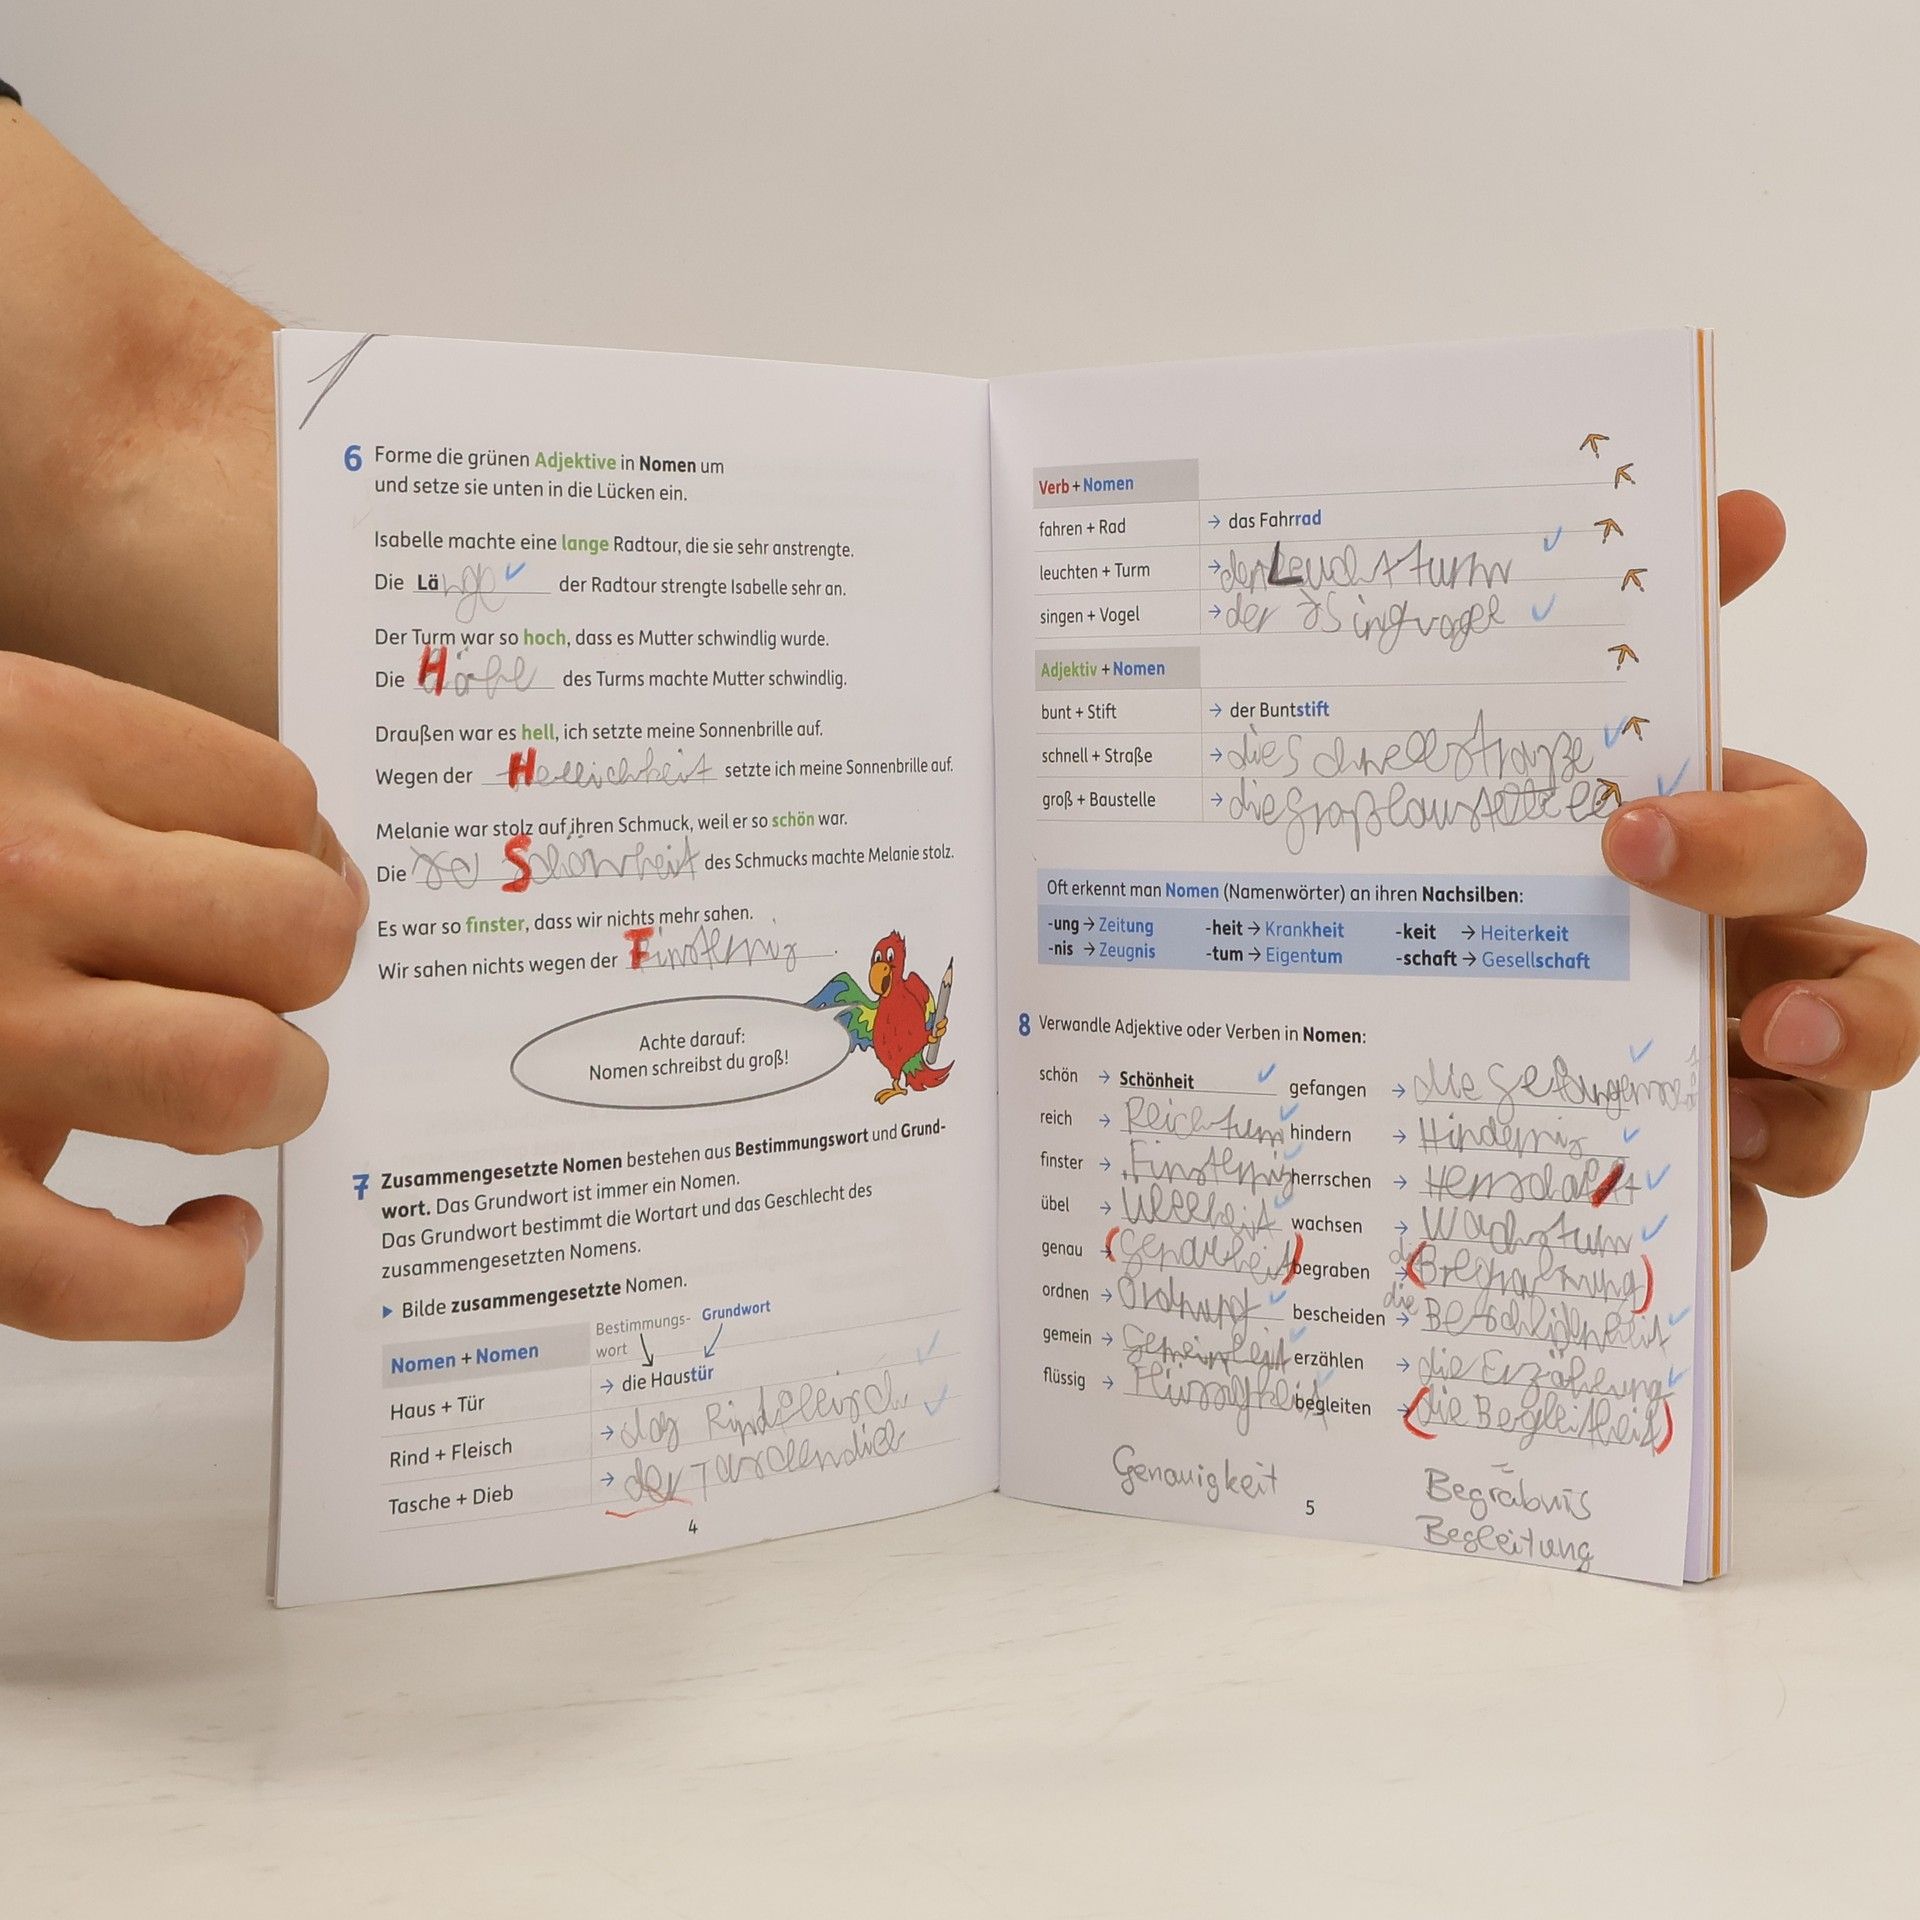 6 Forme die grünen Adjektive in Nomen um
und setze sie unten in die Lücken ein.
Isabelle machte eine lange Radtour, die sie sehr anstrengte.
Die Länge der Radtour strengte Isabelle sehr an.
Der Turm war so hoch, dass es Mutter schwindlig wurde.
Die Höhe des Turms machte Mutter schwindlig.
Draußen war es hell, ich setzte meine Sonnenbrille auf.
Wegen der Hellichkeit setzte ich meine Sonnenbrille auf.
Melanie war stolz auf ihren Schmuck, weil er so schön war.
Die Schönheit des Schmucks machte Melanie stolz.
Es war so finster, dass wir nichts mehr sahen.
Wir sahen nichts wegen der Finsternis.
Achte darauf:
Nomen schreibst du groß!
7 Zusammengesetzte Nomen bestehen aus Bestimmungswort und Grund-
wort. Das Grundwort ist immer ein Nomen.
Das Grundwort bestimmt die Wortart und das Geschlecht des
zusammengesetzten Nomens.
▶ Bilde zusammengesetzte Nomen.
Nomen + Nomen Bestimmungs-wort Grundwort
Haus + Tür → die Haustür
Rind + Fleisch → das Rindfleisch
Tasche + Dieb → der Taschendieb
4
Verb + Nomen
fahren + Rad → das Fahrrad
leuchten + Turm → der Leuchtturm
singen + Vogel → der Singvogel
Adjektiv + Nomen
bunt + Stift → der Buntstift
schnell + Straße → die Schnellstraße
groß + Baustelle → die Großbaustelle
Oft erkennt man Nomen (Namenwörter) an ihren Nachsilben:
-ung → Zeitung -heit → Krankheit -keit → Heiterkeit
-nis → Zeugnis -tum → Eigentum -schaft → Gesellschaft
8 Verwandle Adjektive oder Verben in Nomen:
schön → Schönheit gefangen → die Gefangenschaft
reich → Reichtum hindern → Hindernis
finster → Finsternis herrschen → Herrschaft
übel → Übelkeit wachsen → Wachstum
genau → (Genauheit) begraben → die
ordnen → Ordnung bescheiden → die Bescheidenheit
gemein → Gemeinheit erzählen → die Erzählung
flüssig → Flüssigkeit begleiten → (die Begleitheit)
Genauigkeit
Begräbnis
Begleitung
5